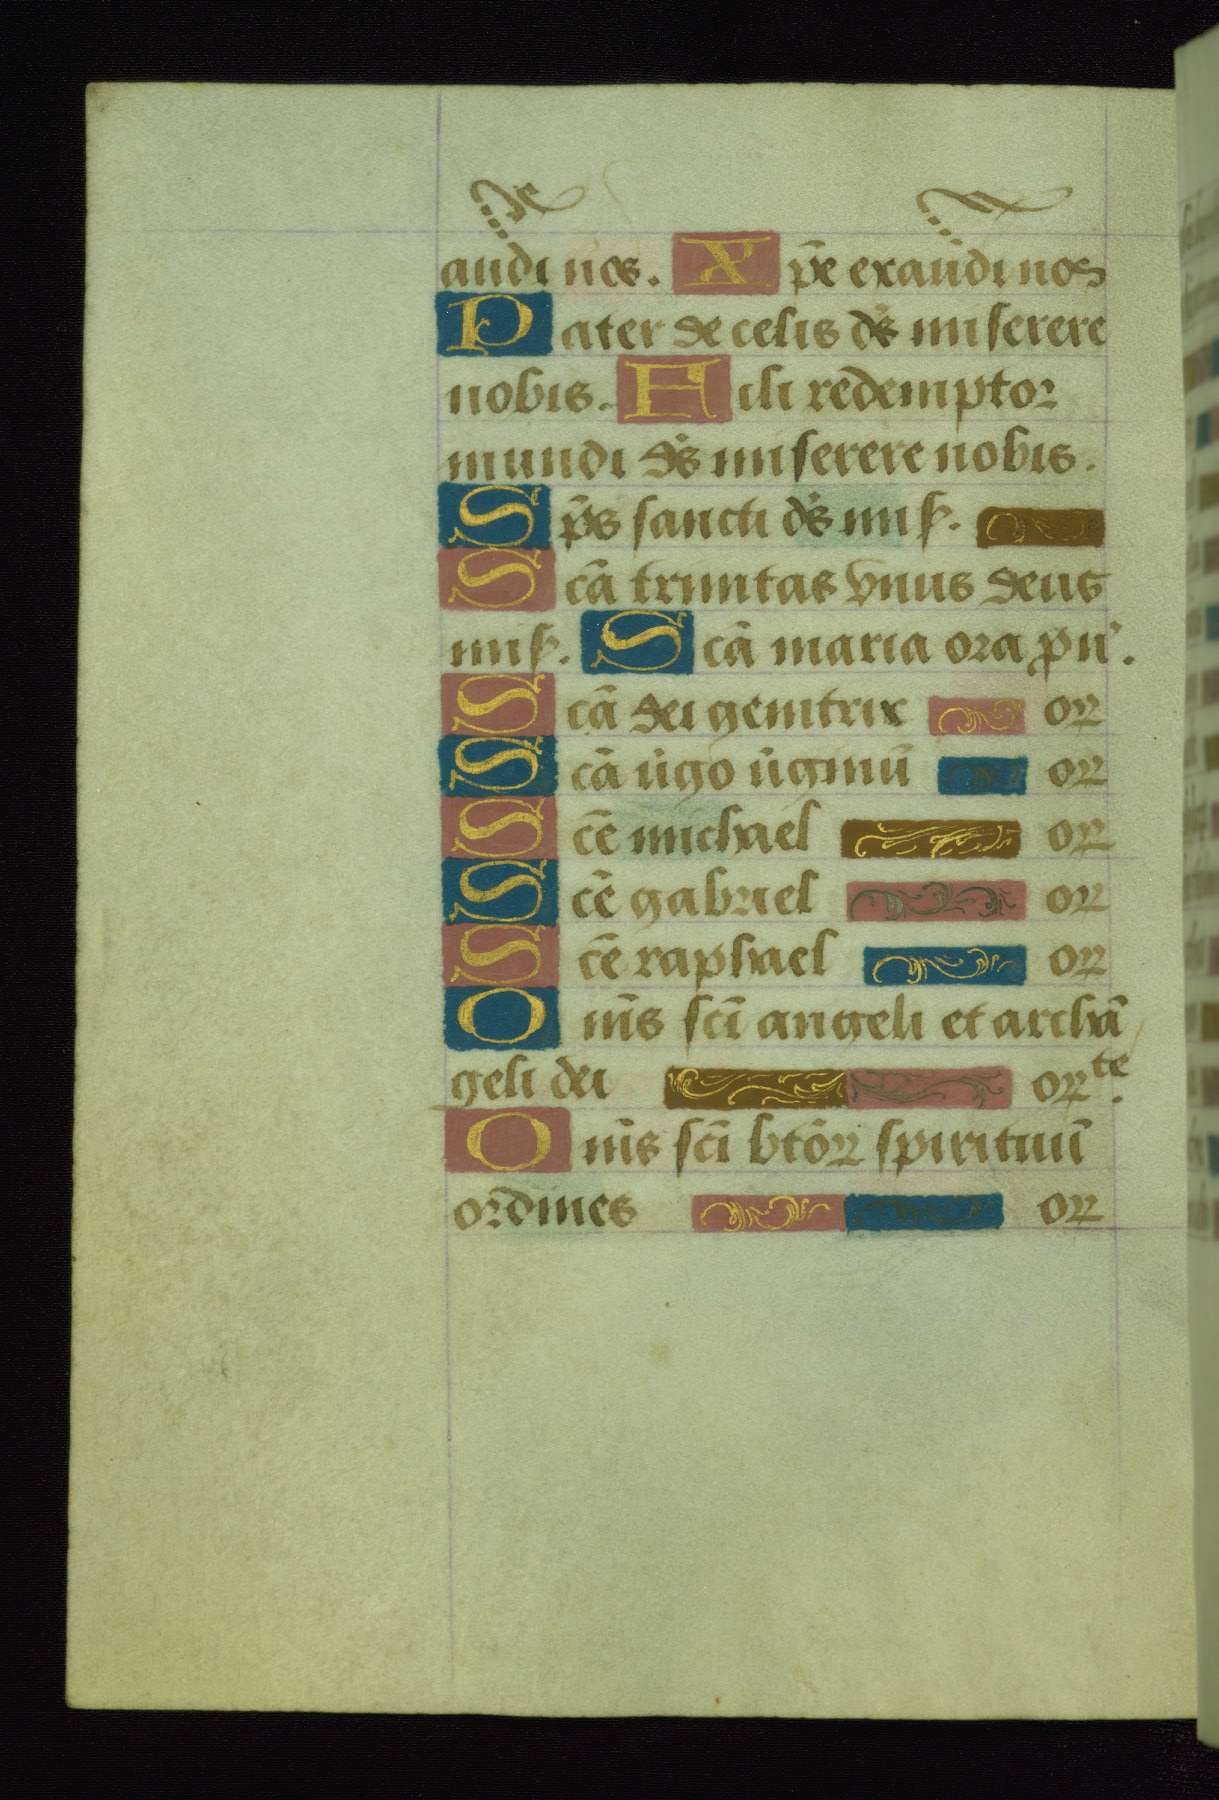 audi nos. Xp̄e exaudi nos
Pater de celis ds̄ miserere
nobis. Fili redemptor
mundi ds̄ miserere nobis.
Sps̄ sancti ds̄ mis̄.
Scā trinitas vnus deus
mis̄. Scā maria ora p n̄.
Scā dei genitrix oꝝ
Scā v̄go v̄ginū oꝝ
Scē michael oꝝ
Scē gabriel oꝝ
Scē raphael oꝝ
Om̄s scī angeli et archā
geli dei oꝝte.
Om̄s scī btōꝝ spirituū
ordines oꝝ